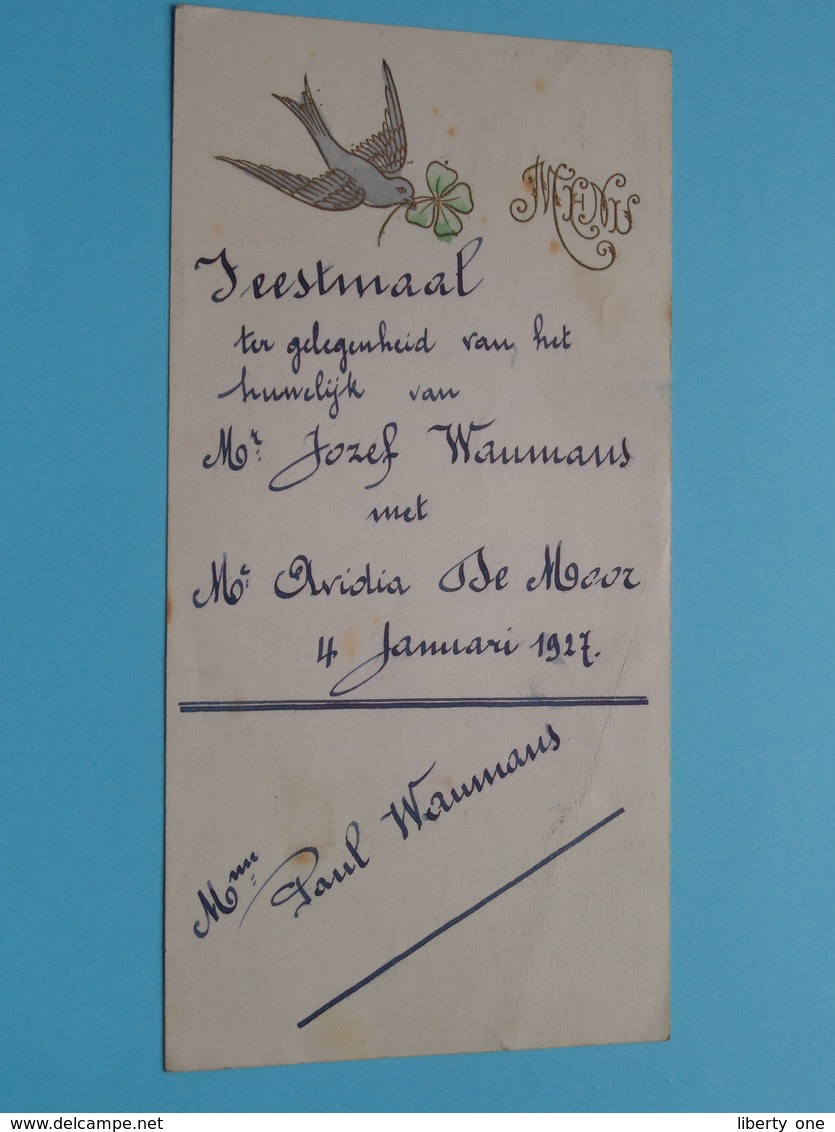 MENU
Feestmaal
ter gelegenheid van het
huwelijk van
Mr. Jozef Waumans
met
Me. Ovidia De Moor
4 Januari 1927.
Mme. Paul Waumans
www.delcampe.net
liberty one